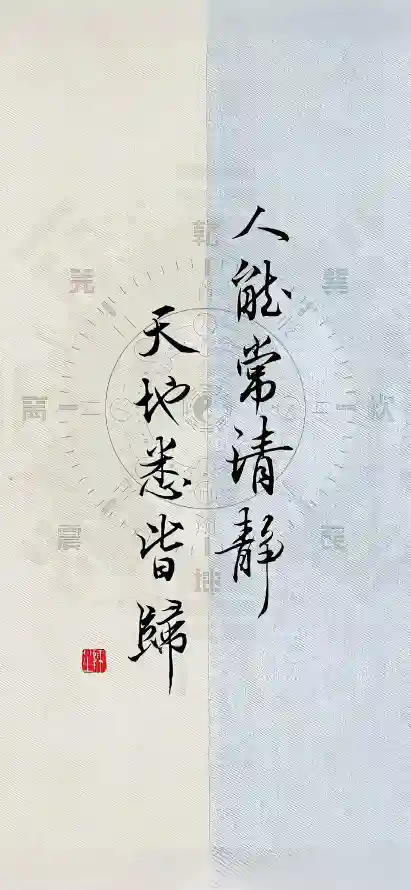 人能常清靜
天地悉皆歸
乾
兌
巽
離
坎
震
艮
坤